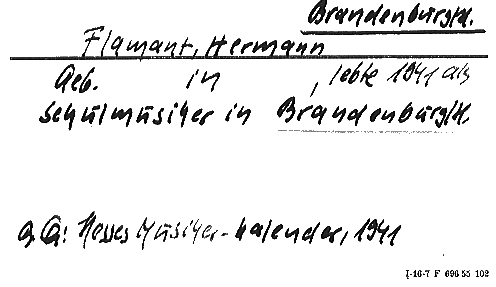 Brandenburg/H.
Flamant, Hermann
Geb. in , lebte 1941 als
Schulmusiker in Brandenburg/H.
Q: Hesses Musiker-Kalender, 1941
I-16-7 F 696 55 102